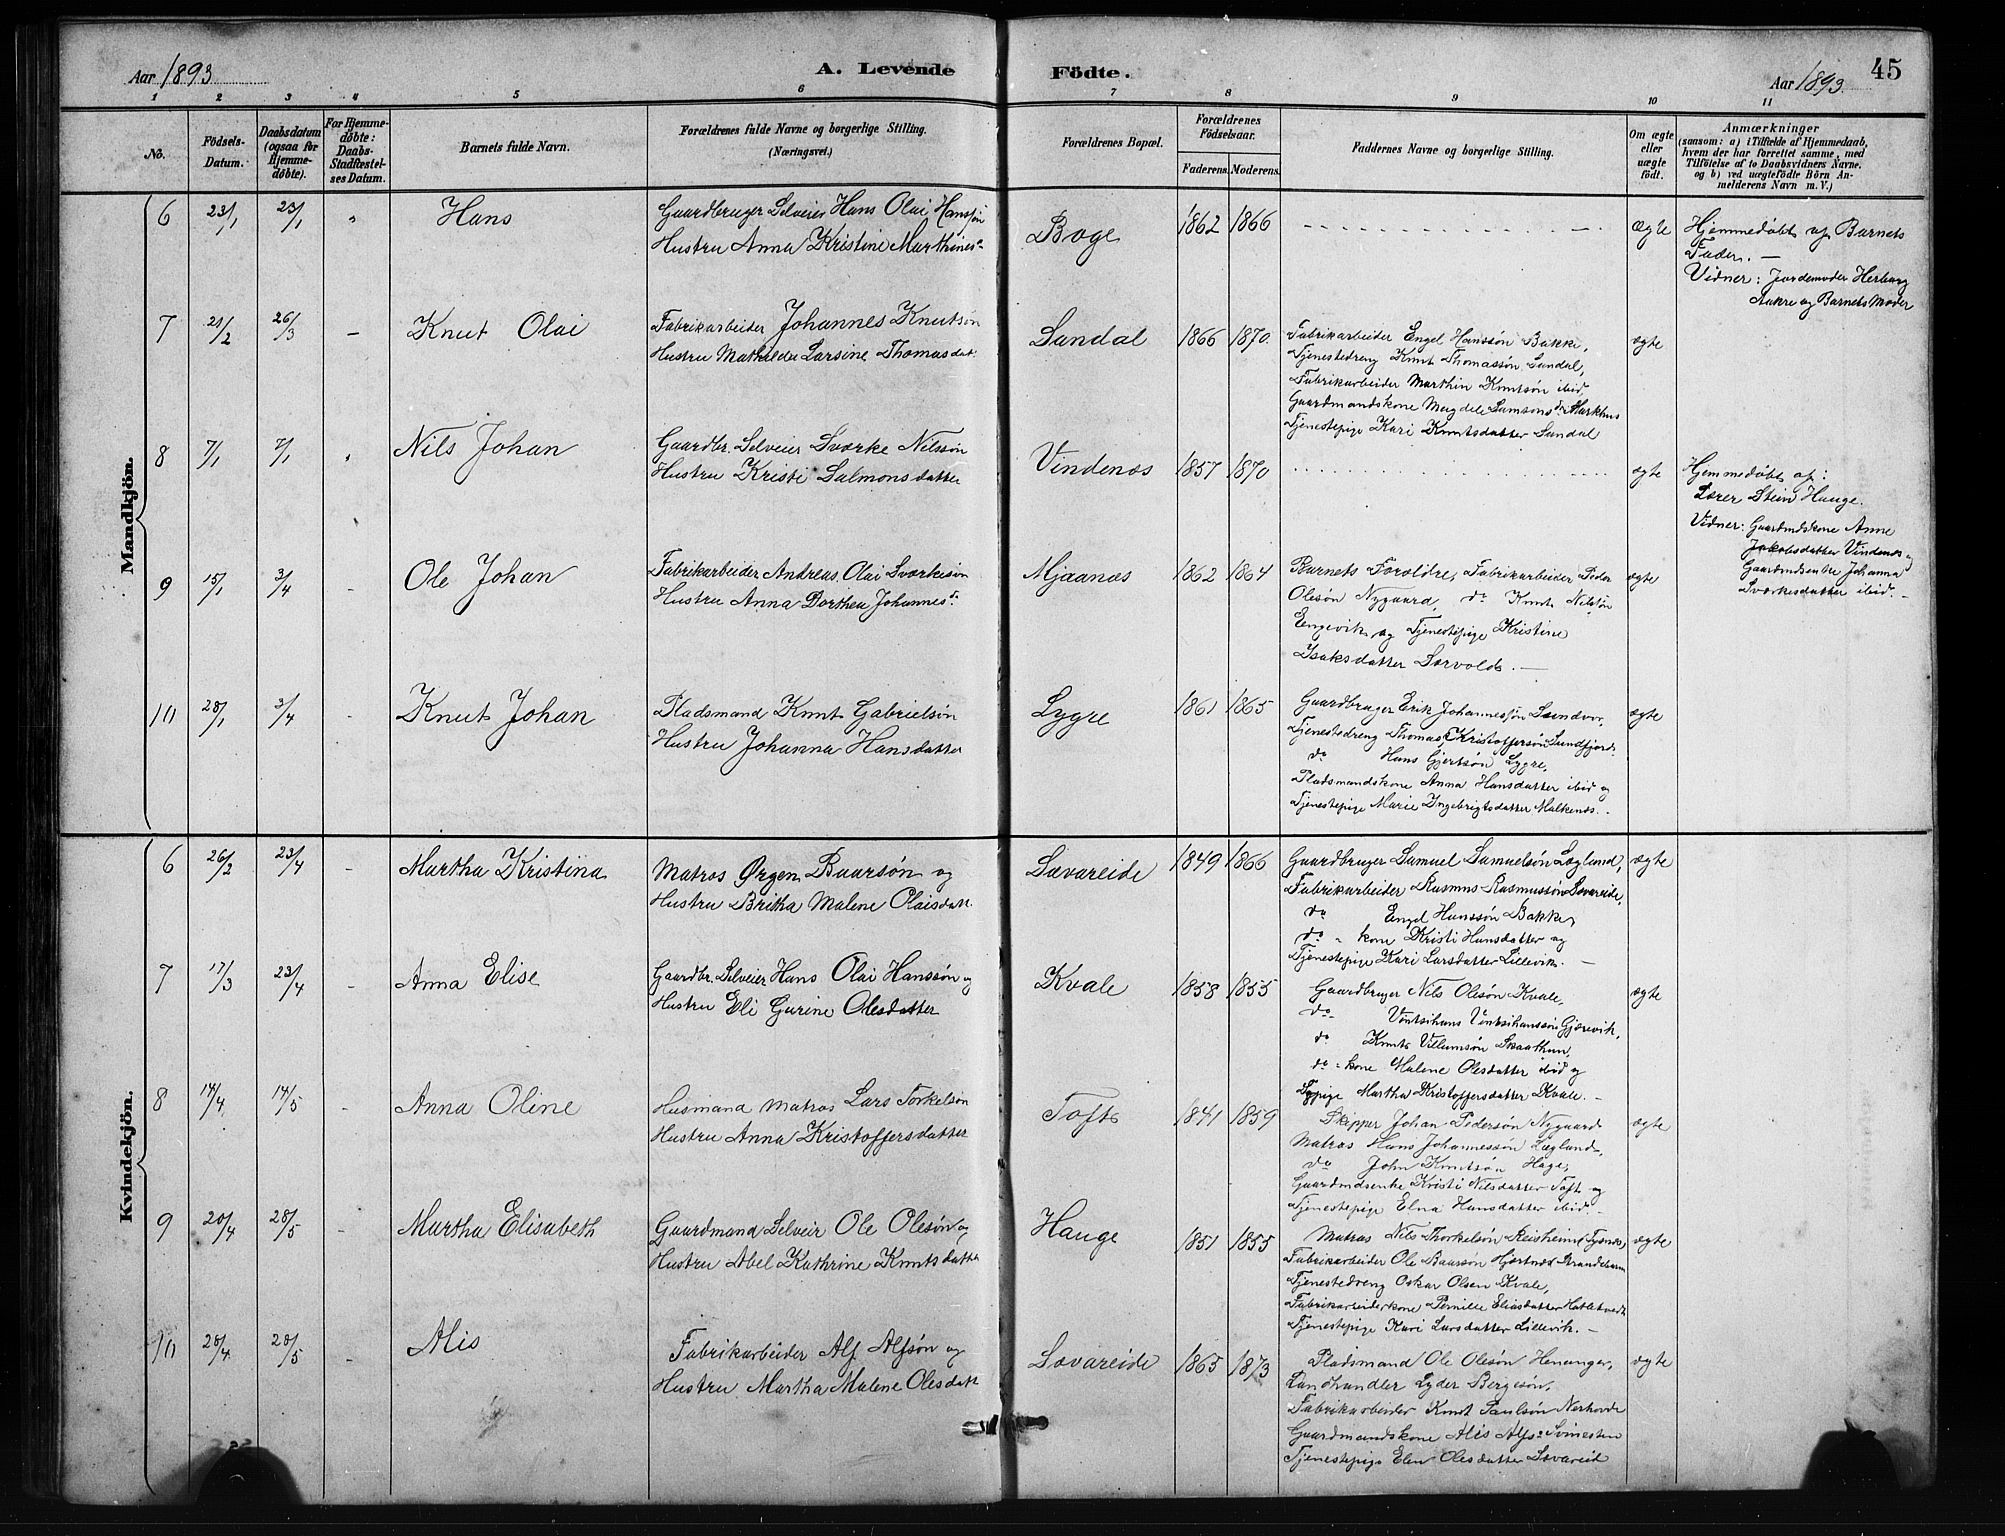 Aar 1893
A. Levende Födte.
Aar 1893.
45
1 2 3 4 5 6 7 8 9 10 11
No.
Födsels-
Datum.
Daabsdatum
(ogsaa for
Hjemme-
döbte).
For Hjemme-
döbte:
Daabs-
Stadfæstel-
ses Datum.
Barnets fulde Navn.
Forældrenes fulde Navne og borgerlige Stilling.
(Næringsvei.)
Forældrenes Bopæl.
Forældrenes
Födselsaar.
Faderens. Moderens.
Faddernes Navne og borgerlige Stilling.
Om ægte
eller
uægte
födt.
Anmærkninger
(sansom: a) i Tilfælde af Hjemmedaab,
hvem der har forrettet samme, med
Tilföielse af to Daabsvidners Navne.
og b) ved uægtefödte Börn An-
melderens Navn m. V.)
Mandkjön.
6 23/1 23/1 " Hans
Gaardbruger Selveier Hans Olai Hanssøn
Hustru Anna Kristine Marthines
Boge 1862 1866 ægte
Hjemmedøbt af Barnets
Fader. —
Vidner: Jordemoder Herborg
Aakre og Barnets Moder
7 21/2 26/3 - Knut Olai
Fabrikarbeider Johannes Knutsøn
Hustru Mathilde Larsine Thomasdat.
Sandal 1866 1870
Fabrikarbeider Engel Hanssøn Bakke,
Tjenestedreng Knut Thomassøn Sandal,
Fabrikarbeider Marthin Knutsøn ibid
Gaardmandskone Magdele Samsons dr Markhus
Tjenestepige Kari Knutsdatter Sandal
ægte
8 7/1 7/1 " Nils Johan
Gaardbr. Selveier Sværke Nilssøn
Hustru Kristi Salmonsdatter
Vindenæs 1857 1870 ægte
Hjemmedøbt af:
Lærer Stein Hauge.
Vidner: Gaardmdskone Anne
Jakobsdatter Vindenæs og
Gaardmdsenke Johanna
Sværkesdatter ibid. —
9 15/1 3/4 - Ole Johan
Fabrikarbeider Andreas Olai Sværkesøn
Hustru Anna Dorthea Johannes d.
Mjaanæs 1862 1864
Barnets Forældre, Fabrikarbeider Peder
Olesøn Nygaard, do Knut Nilssøn
Engevik og Tjenestepige Kristine
Isaksdatter Sørvold. —
ægte
10 28/1 3/4 - Knut Johan
Pladsmand Knut Gabrielsøn
Hustru Johanna Hansdatter
Lygre 1861 1865
Gaardbruger Erik Johannessøn Sandvor,
Tjenestedreng Thomas Kristoffersøn Sundfjord
do Hans Gjertsøn Lygre,
Pladsmandskone Anna Hansdatter ibid og
Tjenestepige Marie Ingebrigtsdatter Malkenæs. -
ægte
Kvindekjön.
6 26/2 23/4 - Martha Kristina
Matros Ørgen Baarsøn og
Hustru Britha Malene Olaisdatt.
Sævareide 1849 1866
Gaardbruger Samuel Samuelsøn Løglund,
Fabrikarbeider Rasmus Rasmussøn Sævareide,
do Engel Hanssøn Bakke,
do - kone Kristi Hansdatter og
Tjenestepige Kari Larsdatter Lillevik. —
ægte
7 17/3 23/4 - Anna Elise
Gaardbr. Selveier Hans Olai Hanssøn og
Hustru Eli Gurine Olesdatter
Kvale 1858 1855
Gaardbruger Nils Olesøn Kvale,
do Vintsihans Vintsihanssøn Gjærevik,
do Knut Villumsøn Skaathun,
do - kone Malene Olesdatter ibid og
Tjpige Martha Kristoffersdatter Kvale. —
ægte
8 14/4 14/5 - Anna Oline
Husmand Matros Lars Torkelsøn
Hustru Anna Kristoffersdatter
Toft 1841 1859
Skipper Johan Pedersøn Nygaard
Matros Hans Johannessøn Løglund,
do John Knutsøn Hage,
Gaardmdsenke Kristi Nilsdatter Toft og
Tjenestepige Elna Hansdatter ibid. -
ægte
9 20/4 28/5 - Martha Elisabeth
Gaardmand Selveir Ole Olesøn og
Hustru Abel Kathrine Knutsdatter
Hauge 1851 1855
Matros Nils Thorkelsøn Reisheim (Tysnæs),
Fabrikarbeider Ole Baarsøn Hjertnæs Strandebarm
Tjenestedreng Oskar Olsen Kvale,
Fabrikarbeiderkone Pernille Eliasdatter Hatletvedt
Tjenestepige Kari Larsdatter Lillevik. —
ægte
10 20/4 28/5 - Alis
Fabrikarbeider Alf Alfsøn og
Hustru Martha Malene Olesdatt
Sævareide 1865 1873
Pladsmand Ole Olesøn Henanger,
Landhandler Lyder Bergesøn,
Fabrikarbeider Knut Paulsøn Nerhovde
Gaardmandskone Alis Alfs d Svinesten
Tjenestepige Elen Olesdatter Sævareid
ægte